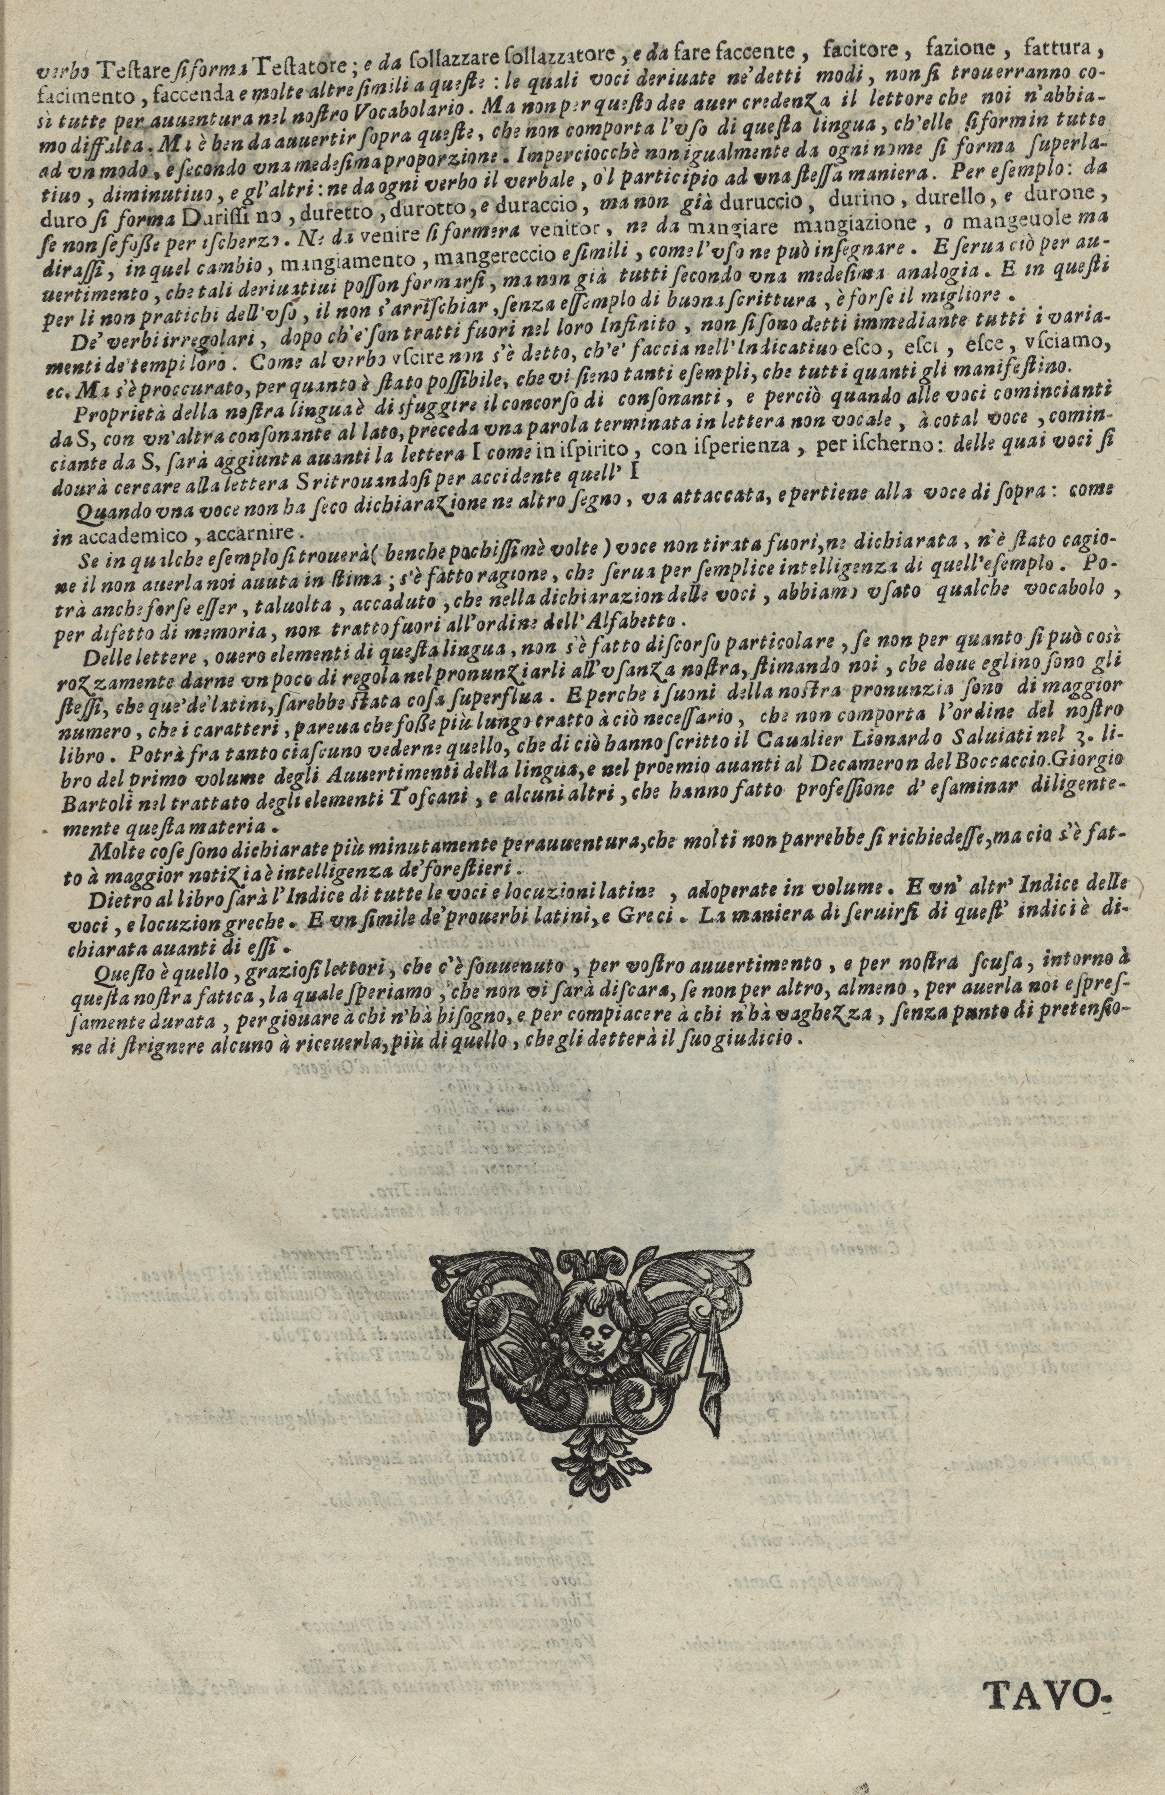 verbo Teſtare ſi forma Teſtatore; e da ſollazzare ſollazzatore, e da fare faccente, facitore, fazione, fattura,
facimento, faccenda e molte altre ſimili a queſte: le quali voci deriuate ne' detti modi, non ſi trouerranno co-
sì tutte per auuentura nel noſtro Vocabolario. Ma non per queſto dee auer credenza il lettore che noi n'abbia-
mo diffalta. Ma è ben da auuertir ſopra queſte, che non comporta l'vſo di queſta lingua, ch'elle ſi formin tutte
ad vn modo, e ſecondo vna medeſima proporzione. Imperciocchè non igualmente da ogni nome ſi forma ſuperla-
tiuo, diminutiuo, e gl'altri: ne da ogni verbo il verbale, o'l participio ad vna ſteſſa maniera. Per eſemplo: da
duro ſi forma Duriſſino, duretto, durotto, e duraccio, ma non già duruccio, durino, durello, e durone,
ſe non ſe foſſe per iſcherzo. Ne da venire ſi formera venitor, ne da mangiare mangiazione, o mangeuole ma
diraſſi, in quel cambio, mangiamento, mangereccio e ſimili, come l'vſo ne può inſegnare. E ſerua ciò per au-
uertimento, che tali deriuatiui poſſon formarſi, ma non già tutti ſecondo vna medeſima analogia. E in queſti
per li non pratichi dell'vſo, il non s'arriſchiar, ſenza eſſemplo di buona ſcrittura, è forſe il migliore.
De' verbi irregolari, dopo ch'e' ſon tratti fuori nel loro Infinito, non ſi ſono detti immediante tutti i varia-
menti de' tempi loro. Come al verbo vſcire non s'è detto, ch'e' faccia nell'Indicatiuo eſco, eſci, eſce, vſciamo,
ec. Ma s'è proccurato, per quanto è ſtato poſſibile, che vi ſieno tanti eſempli, che tutti quanti gli manifeſtino.
Proprietà della noſtra lingua è di sfuggire il concorſo di conſonanti, e perciò quando alle voci comincianti
da S, con vn'altra conſonante al lato, preceda vna parola terminata in lettera non vocale, à cotal voce, comin-
ciante da S, ſarà aggiunta auanti la lettera I come in iſpirito, con iſperienza, per iſcherno: delle quai voci ſi
dourà cercare alla lettera S ritrouandoſi per accidente quell' I
Quando vna voce non ha ſeco dichiarazione ne altro ſegno, va attaccata, e pertiene alla voce di ſopra: come
in accademico, accarnire.
Se in qualche eſemplo ſi trouerà (benche pochiſſimè volte) voce non tirata fuori, ne dichiarata, n'è ſtato cagio-
ne il non auerla noi auuta in ſtima; s'è fatto ragione, che ſerua per ſemplice intelligenza di quell'eſemplo. Po-
trà anche forſe eſſer, taluolta, accaduto, che nella dichiarazion delle voci, abbiamo vſato qualche vocabolo,
per difetto di memoria, non tratto fuori all'ordine dell'Alfabetto.
Delle lettere, ouero elementi di queſta lingua, non s'è fatto diſcorſo particolare, ſe non per quanto ſi può così
rozzamente darne vn poco di regola nel pronunziarli all'vſanza noſtra, ſtimando noi, che doue eglino ſono gli
ſteſſi, che que' de' latini, ſarebbe ſtata coſa ſuperflua. E perche i ſuoni della noſtra pronunzia ſono di maggior
numero, che i caratteri, pareua che foſſe più lungo tratto à ciò neceſſario, che non comporta l'ordine del noſtro
libro. Potrà fra tanto ciaſcuno vederne quello, che di ciò hanno ſcritto il Caualier Lionardo Saluiati nel 3. li-
bro del primo volume degli Auuertimenti della lingua, e nel proemio auanti al Decameron del Boccaccio. Giorgio
Bartoli nel trattato degli elementi Toſcani, e alcuni altri, che hanno fatto profeſſione d'eſaminar diligente-
mente queſta materia.
Molte coſe ſono dichiarate più minutamente perauuentura, che molti non parrebbe ſi richiedeſſe, ma cio s'è fat-
to à maggior notizia è intelligenza de' foreſtieri.
Dietro al libro ſarà l'Indice di tutte le voci e locuzioni latine, adoperate in volume. E vn' altr' Indice delle
voci, e locuzion greche. E vn ſimile de' prouerbi latini, e Greci. La maniera di ſeruirſi di queſt' indici è di-
chiarata auanti di eſſi.
Queſto è quello, grazioſi lettori, che c'è ſouuenuto, per voſtro auuertimento, e per noſtra ſcuſa, intorno à
queſta noſtra fatica, la quale ſperiamo, che non vi ſarà diſcara, ſe non per altro, almeno, per auerla noi eſpreſ-
ſamente durata, per giouare à chi n'hà biſogno, e per compiacere à chi n'hà vaghezza, ſenza punto di pretenſio-
ne di ſtrignere alcuno à riceuerla, più di quello, che gli detterà il ſuo giudicio.
TAVO-